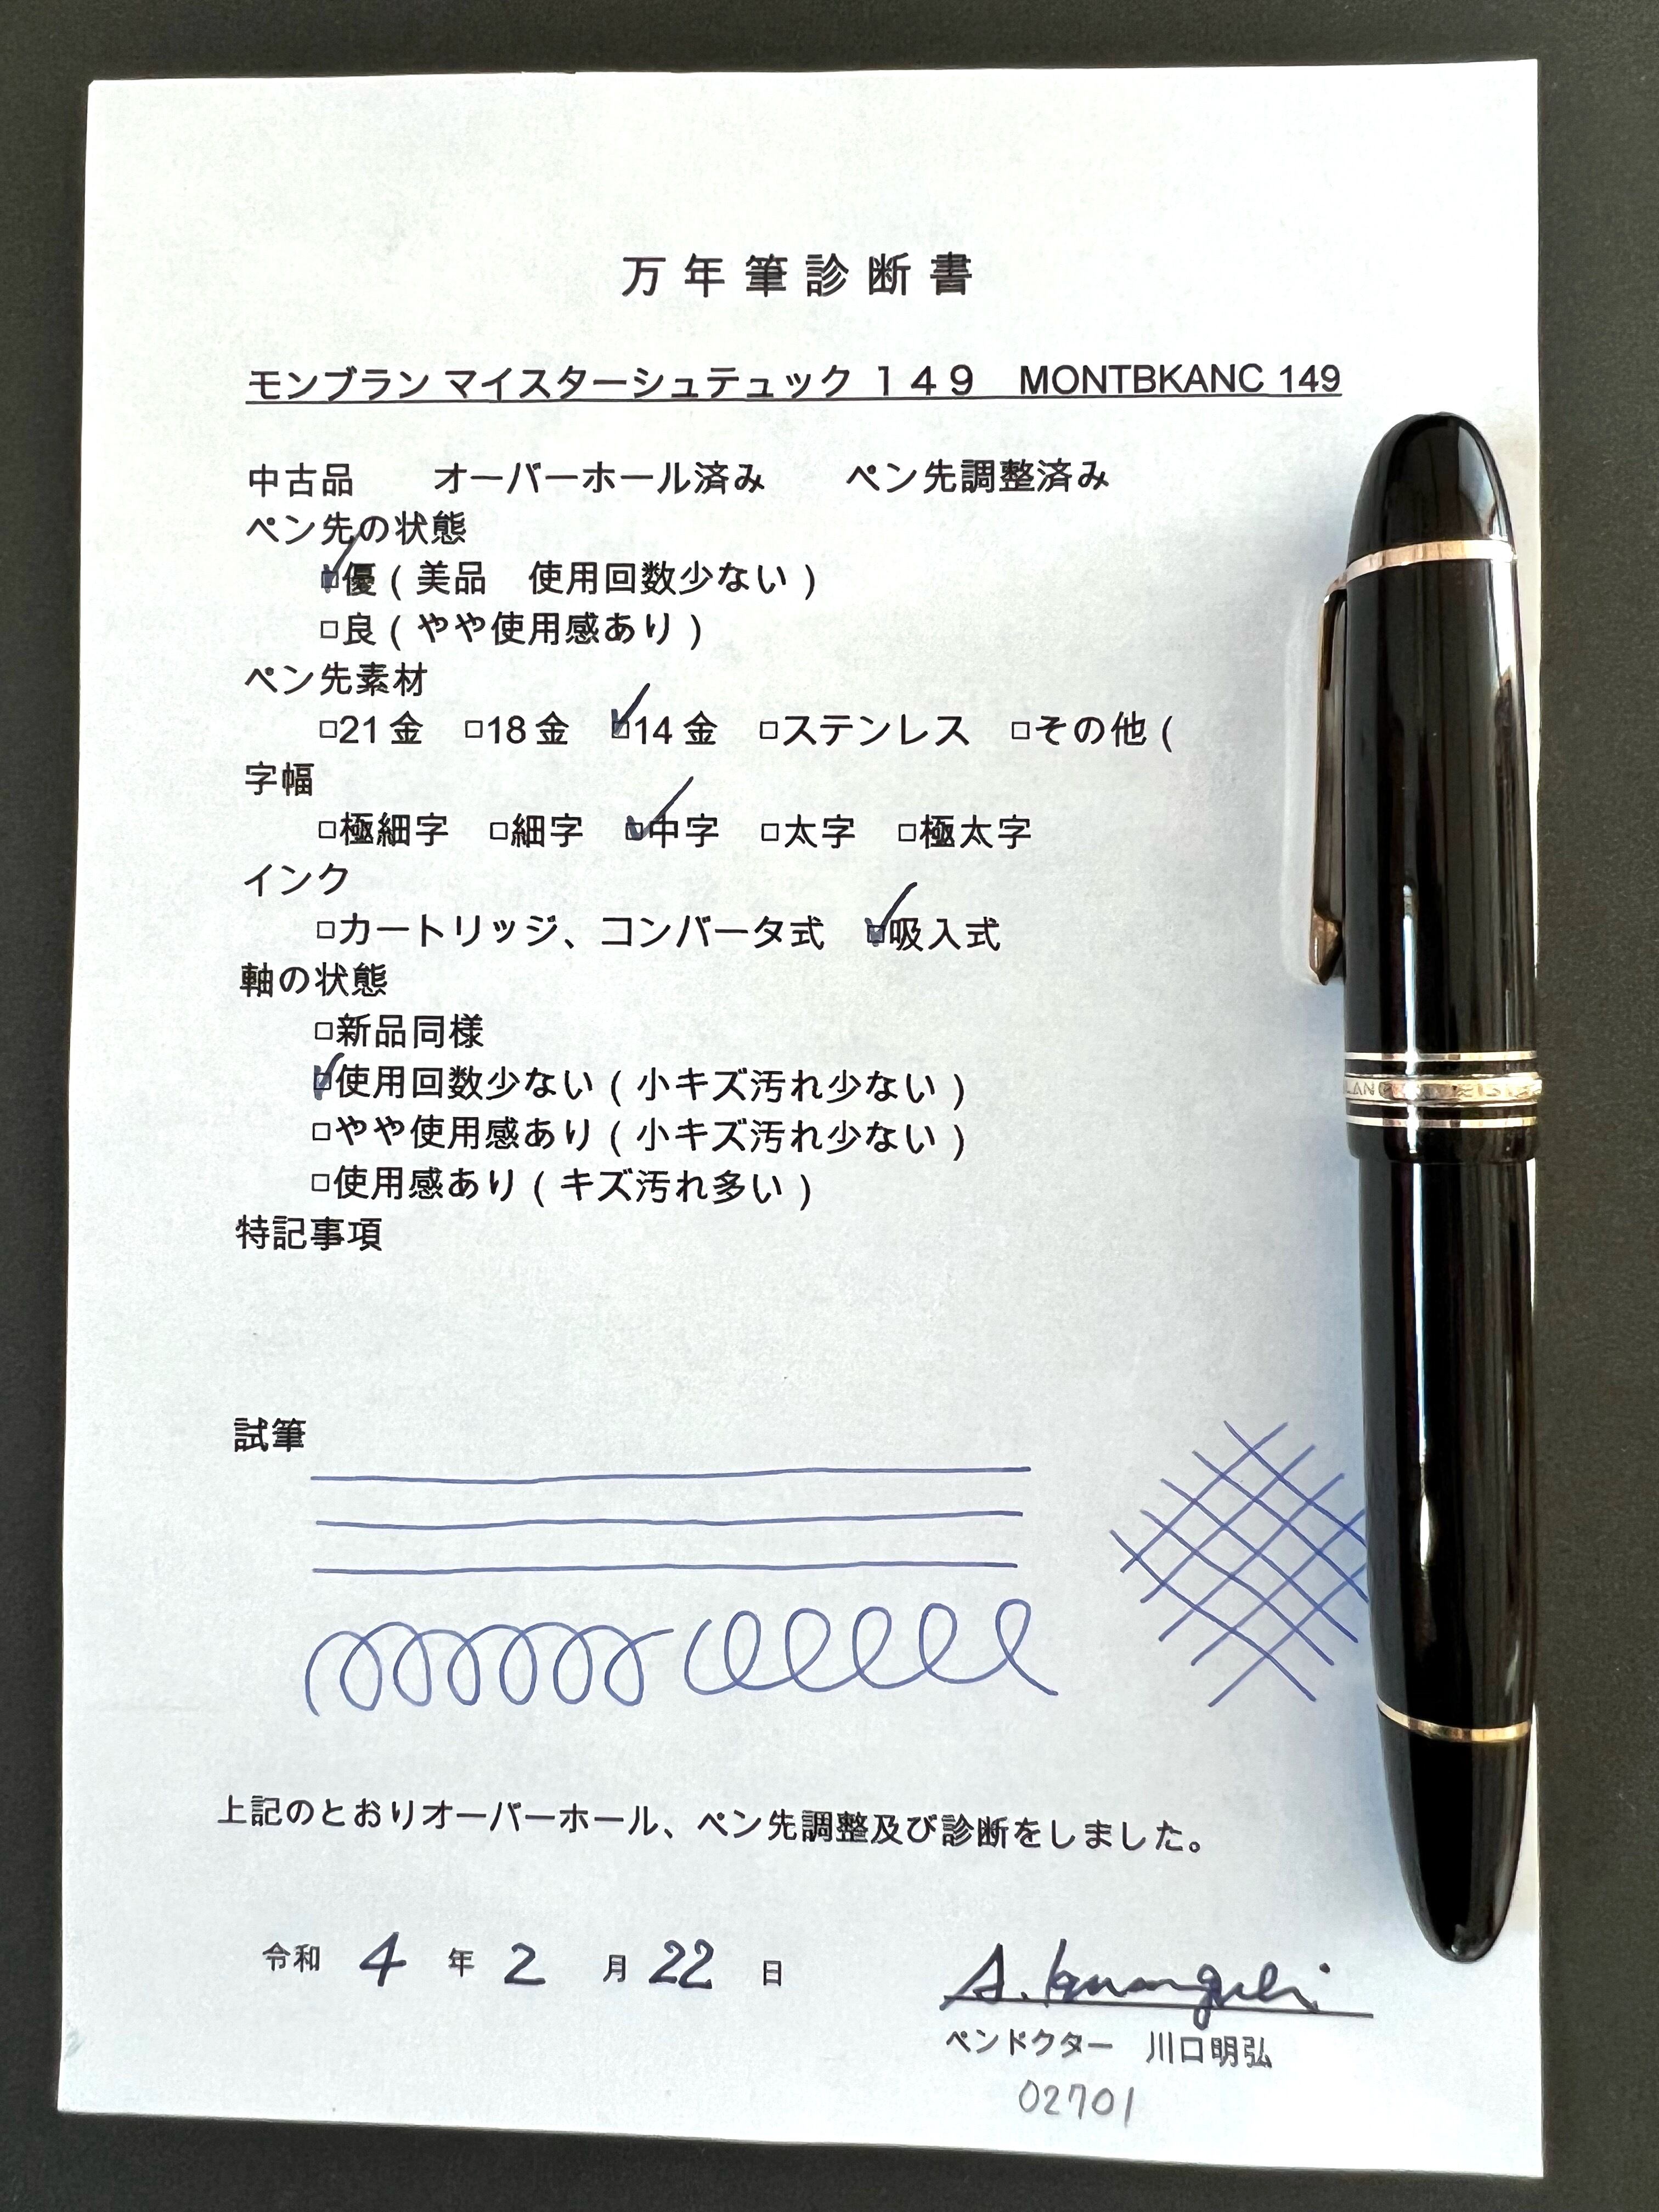 万年筆診断書
モンブラン マイスターシュテュック １４９　MONTBKANC 149
中古品　　オーバーホール済み　　ペン先調整済み
ペン先の状態
☑優（美品　使用回数少ない）
□良（やや使用感あり）
ペン先素材
□21金　□18金　☑14金　□ステンレス　□その他（
字幅
□極細字　□細字　☑中字　□太字　□極太字
インク
□カートリッジ、コンバータ式　☑吸入式
軸の状態
□新品同様
☑使用回数少ない（小キズ汚れ少ない）
□やや使用感あり（小キズ汚れ少ない）
□使用感あり（キズ汚れ多い）
特記事項
試筆
上記のとおりオーバーホール、ペン先調整及び診断をしました。
令和 4 年 2 月 22 日
ペンドクター　川口明弘
02701